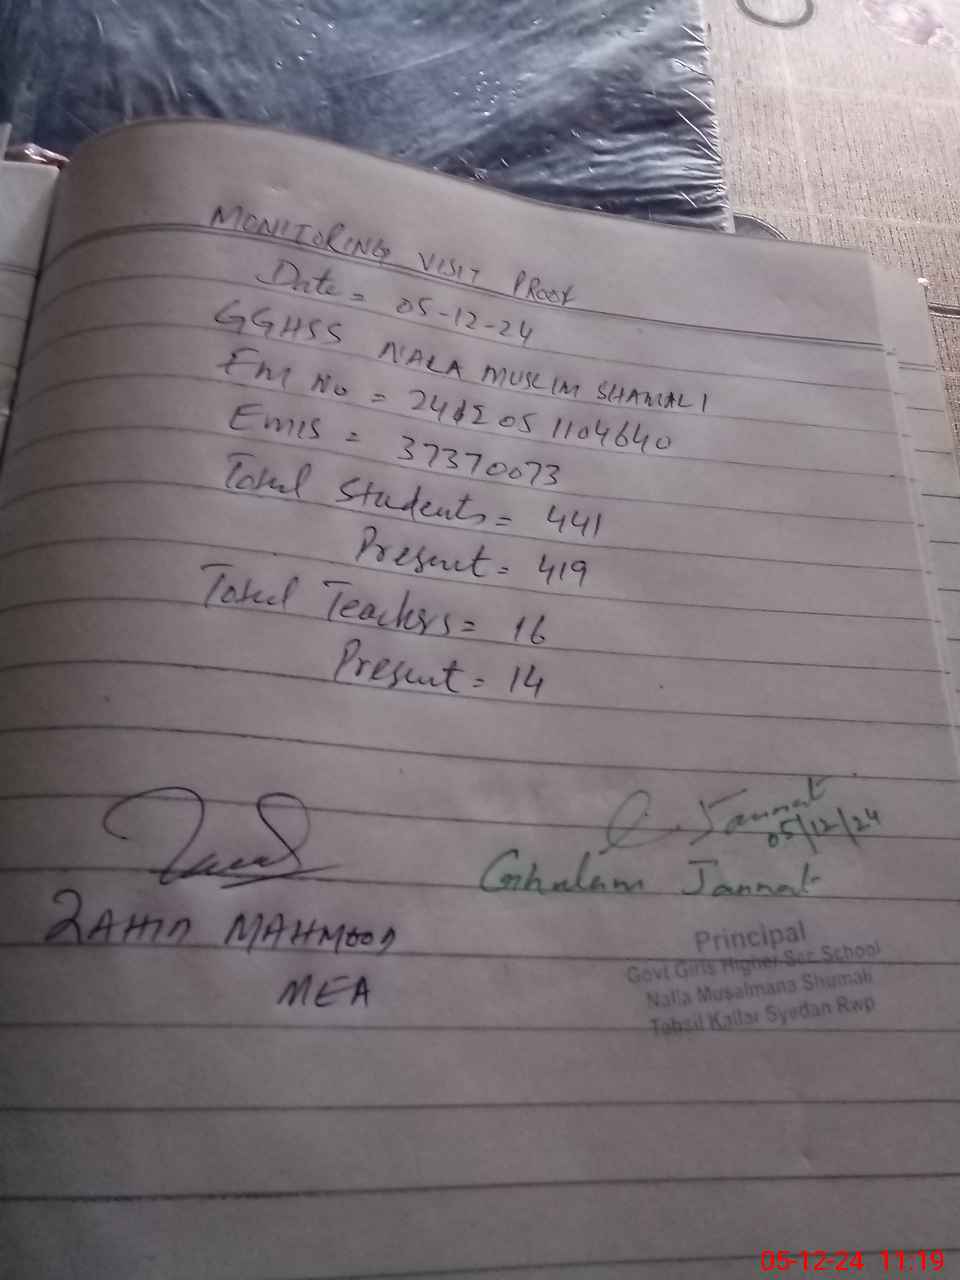 MONITORING VISIT PROOF
Date = 05-12-24
GGHSS NALA MUSLIM SHAMALI
EM No = 241205 1104640
Emis = 37370073
Total Students = 441
Present = 419
Total Teachers = 16
Present = 14
Jannat
05/12/24
Ghulam Jannat
ZAHID MAHMOOD
MEA
Principal
Govt Girls Higher Sec School
Nalla Musalmana Shumali
Tehsil Kallar Syedan Rwp
05-12-24 11:19